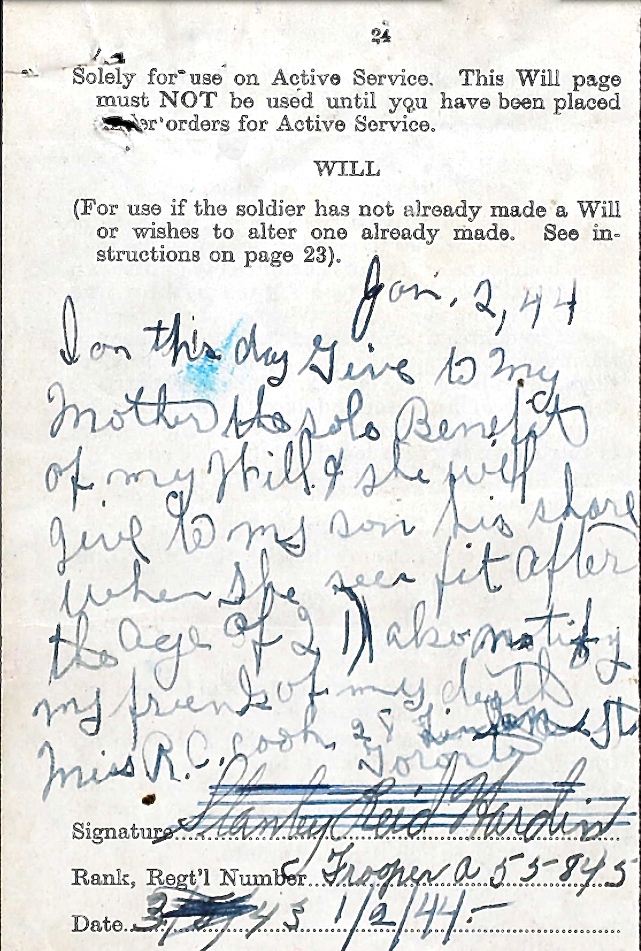 24
Solely for use on Active Service. This Will page
must NOT be used until you have been placed
under orders for Active Service.
WILL
(For use if the soldier has not already made a Will
or wishes to alter one already made. See in-
structions on page 23).
Jan. 2, 44
I on this day Give to my
Mother the sole Benefit
of my Will & she will
give to my son his share
when she sees fit after
the age of 21) also notify
my friend of my death
Miss R.C. Cook 28 St
Toronto
Signature Stanley Reid Hardin
Rank, Regt'l Number Trooper A 55845
Date 3/ /43 1/2/44.-